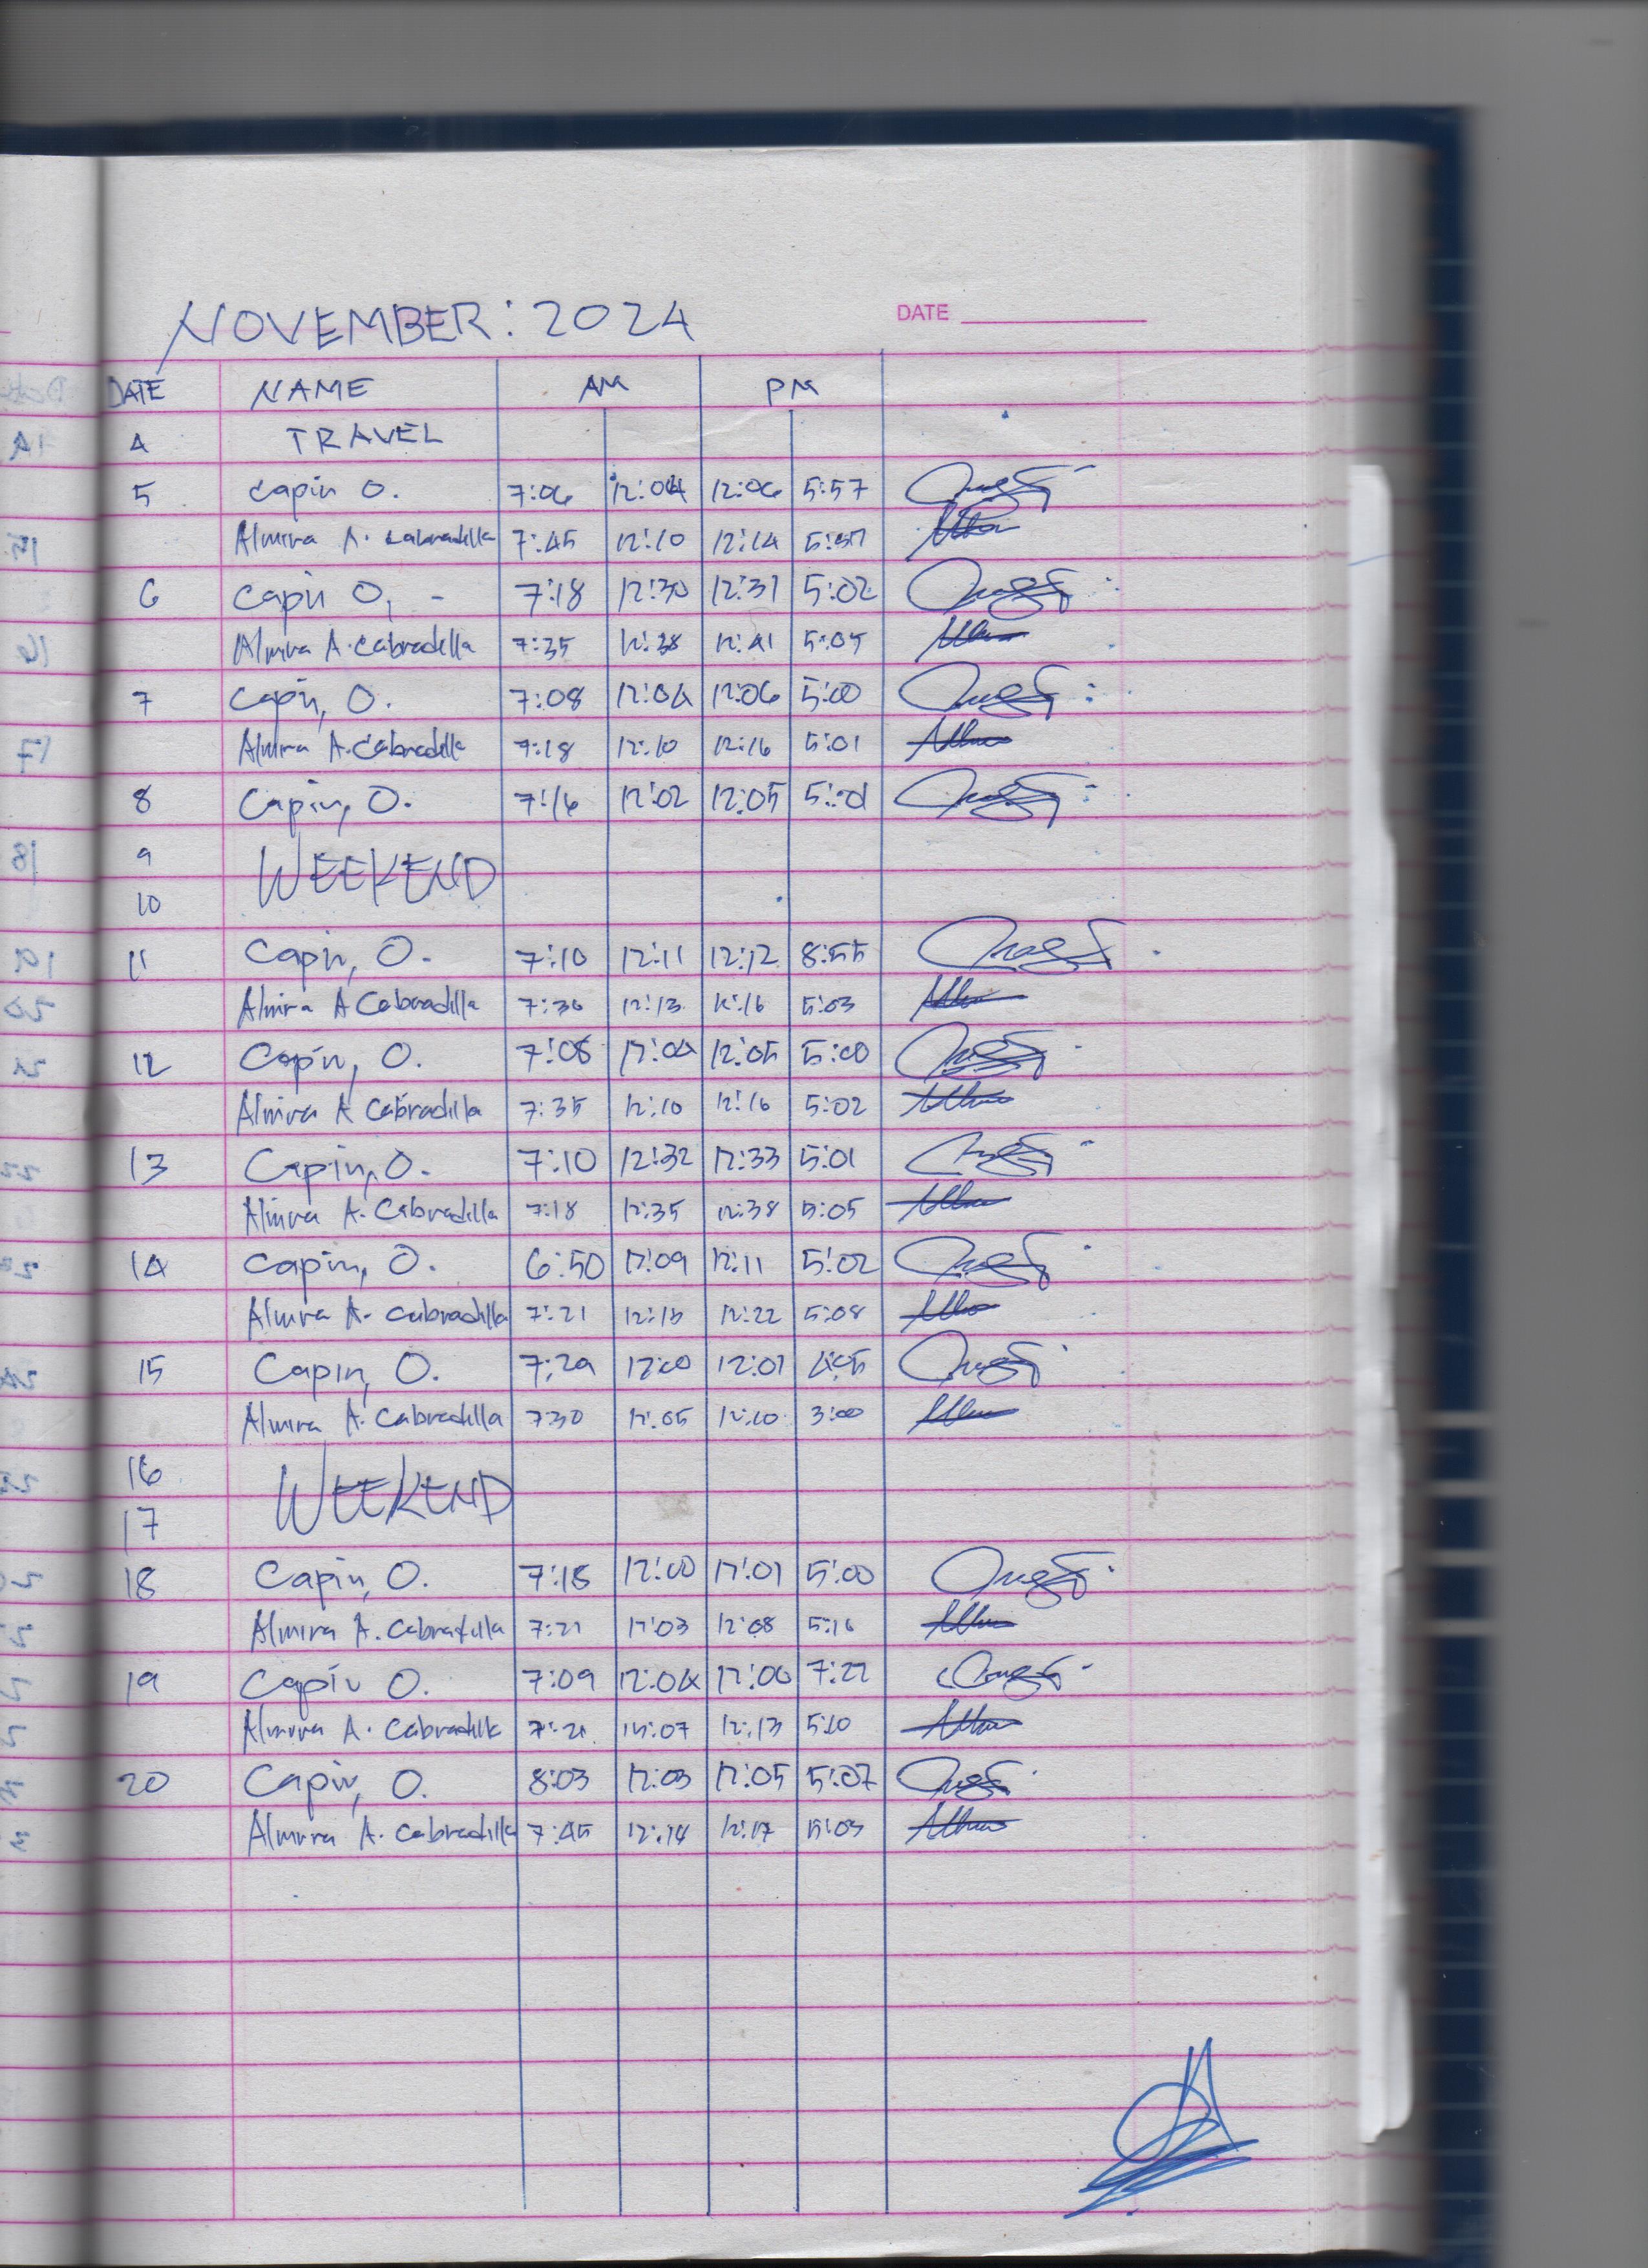 NOVEMBER: 2024
DATE
DATE NAME AM PM
4 TRAVEL
5 Capin O. 7:06 12:04 12:06 5:57
Almira A. Cabradilla 7:45 12:10 12:14 5:57
6 Capin O, - 7:18 12:30 12:31 5:02
Almira A. Cabradilla 7:35 12:38 12:41 5:05
7 Capin, O. 7:08 12:04 12:06 5:00
Almira A. Cabradilla 7:18 12:10 12:16 5:01
8 Capin, O. 7:16 12:02 12:05
9 WEEKEND
10
11 Capin, O. 7:10 12:11 12:12 8:55
Almira A Cabradilla 7:30 12:13 12:16 5:03
12 Capin, O. 7:08 12:04 12:05 5:00
Almira A Cabradilla 7:35 12:10 12:16 5:02
13 Capin, O. 7:10 12:32 12:33 5:01
Almira A. Cabradilla 7:18 12:35 12:38 5:05
14 Capin, O. 6:50 12:09 12:11 5:02
Almira A. Cabradilla 7:21 12:15 12:22 5:08
15 Capin, O. 7:29 12:00 12:01
Almira A. Cabradilla 7:30 12:05 12:10 3:00
16 WEEKEND
17
18 Capin, O. 7:18 12:00 12:01 5:00
Almira A. Cabradilla 7:21 12:03 12:08 5:16
19 Capin O. 7:09 12:04 12:06 7:22
Almira A. Cabradilla 7:21 12:07 12:13 5:10
20 Capin, O. 8:03 12:03 12:05 5:07
Almira A. Cabradilla 7:45 12:14 12:17 5:09